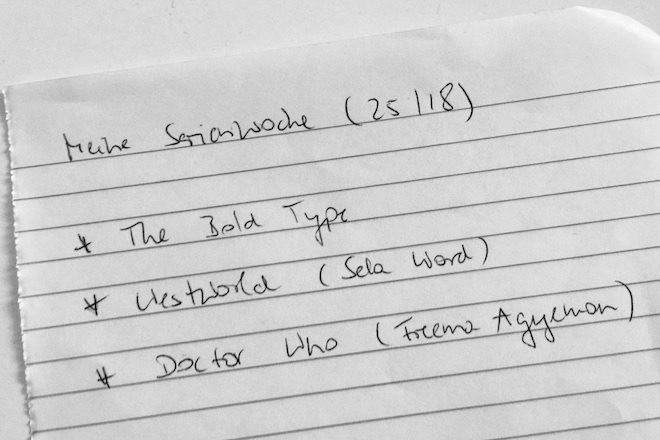 Meine Serienwoche (25/18)
* The Bold Type
* Westworld (Sela Ward)
* Doctor Who (Freema Agyeman)